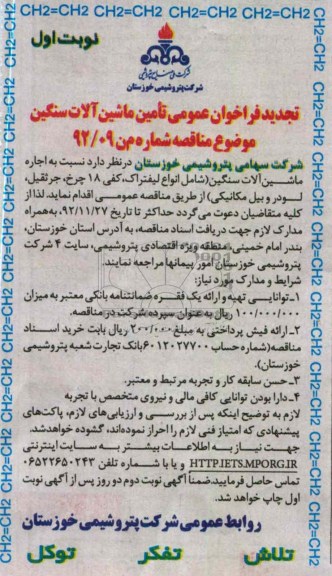 CH2=CH2 CH2=CH2 CH2=CH2 CH2=CH2 CH2=CH2
نوبت اول
شرکت ملی صنایع پتروشیمی
شرکت پتروشیمی خوزستان
تجدید فراخوان عمومی تأمین ماشین آلات سنگین
موضوع مناقصه شماره من ۹۲/۰۹
شرکت سهامی پتروشیمی خوزستان در نظر دارد نسبت به اجاره
ماشین آلات سنگین (شامل انواع لیفتراک، کفی ۱۸ چرخ، جرثقیل،
لودر و بیل مکانیکی) از طریق مناقصه عمومی اقدام نماید. لذا از
کلیه متقاضیان دعوت می گردد حداکثر تا تاریخ ۹۲/۱۱/۲۷، به همراه
مدارک لازم جهت دریافت اسناد مناقصه، به آدرس استان خوزستان،
بندر امام خمینی، منطقه ویژه اقتصادی پتروشیمی، سایت ۴ شرکت
پتروشیمی خوزستان امور پیمانها مراجعه نمایند.
شرایط و مدارک مورد نیاز:
۱-توانایی تهیه و ارائه یک فقره ضمانتنامه بانکی معتبر به میزان
۱۰۰/۰۰۰/۰۰۰ ریال به عنوان سپرده شرکت در مناقصه.
۲- ارائه فیش پرداختی به مبلغ ۲۰۰/۰۰۰ ریال بابت خرید اسناد
مناقصه (شماره حساب ۶۰۱۲۰۲۷۷۰۰ بانک تجارت شعبه پتروشیمی
خوزستان).
۳-حسن سابقه کار و تجربه مرتبط و معتبر.
۴-دارا بودن توانایی کافی مالی و نیروی متخصص با تجربه
لازم به توضیح اینکه پس از بررسی و ارزیابی های لازم، پاکت های
پیشنهادی که امتیاز فنی لازم را احراز نموده اند، گشوده خواهد شد.
جهت نیاز به اطلاعات بیشتر به سایت اینترنتی
HTTP.IETS.MPORG.IR و یا با شماره تلفن ۰۶۵۲۲۶۵۰۲۴۳
تماس حاصل فرمایید. ضمناً آگهی نوبت دوم دو روز پس از آگهی نوبت
اول چاپ خواهد شد.
روابط عمومی شرکت پتروشیمی خوزستان
تلاش تفکر توکل